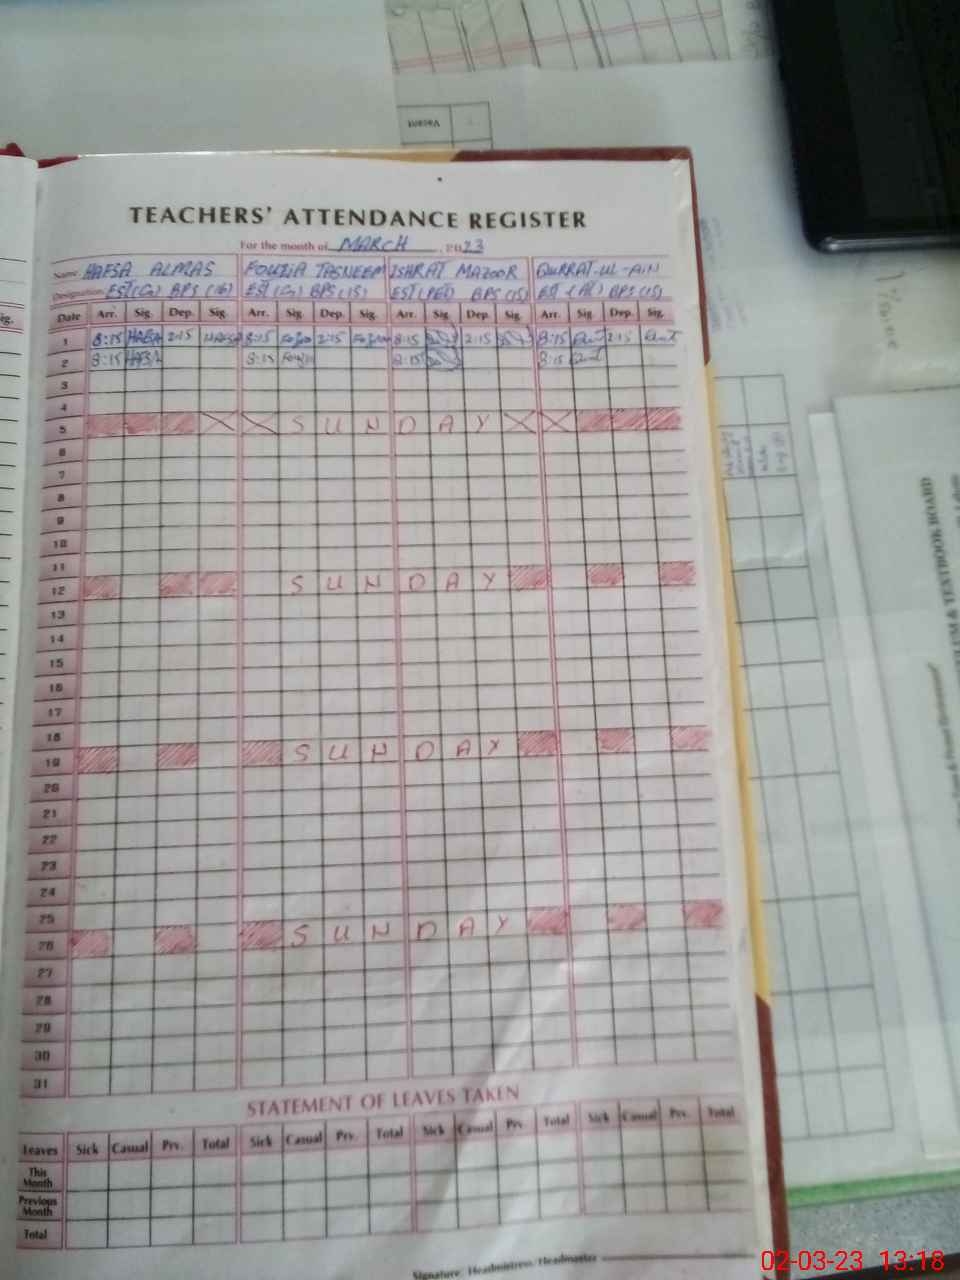 TEACHERS' ATTENDANCE REGISTER
For the month of MARCH, 2023
Name HAFSA ALMAS FOUZIA TASNEEM ISHRAT MAZOOR QURRAT-UL-AIN
Designation EST(G) BPS(16) EST(G) BPS(15) EST(PET) BPS(15) EST BPS(15)
Date Arr. Sig. Dep. Sig. Arr. Sig. Dep. Sig. Arr. Sig. Dep. Sig. Arr. Sig. Dep. Sig.
1 8:15 HAFSA 2:15 HAFSA 8:15 2:15 8:15 2:15 8:15 2:15
2 8:15 HAFSA 8:15 8:15 8:15
3
4
5 SUNDAY
6
7
8
9
10
11
12 SUNDAY
13
14
15
16
17
18
19 SUNDAY
20
21
22
23
24
25
26 SUNDAY
27
28
29
30
31
STATEMENT OF LEAVES TAKEN
Leaves Sick Casual Prv. Total Sick Casual Prv. Total Sick Casual Prv. Total Sick Casual Prv. Total
This Month
Previous Month
Total
Signature: Headmistress/Headmaster
Vacant
& TEXTBOOK BOARD
02-03-23 13:18